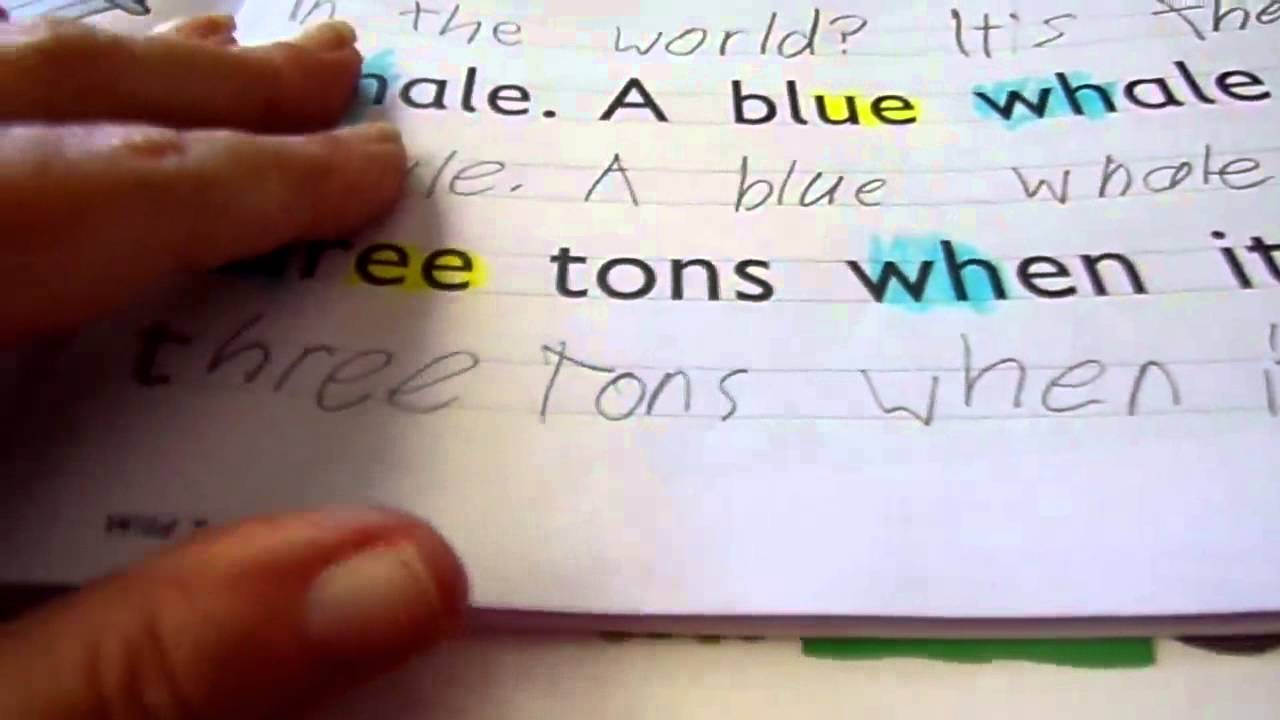 in the world? It's the
hale. A blue whale
le. A blue whale
ree tons when it
three tons when i